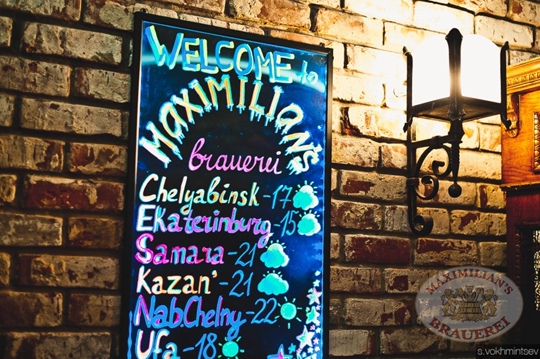 WELCOME to
MAXIMILIAN'S
brauerei
Chelyabinsk - 17
Ekaterinburg - 15
Samara - 21
Kazan' - 21
NabChelny - 22
Ufa - 18
MAXIMILIAN'S
BRAUEREI
s.vokhmintsev